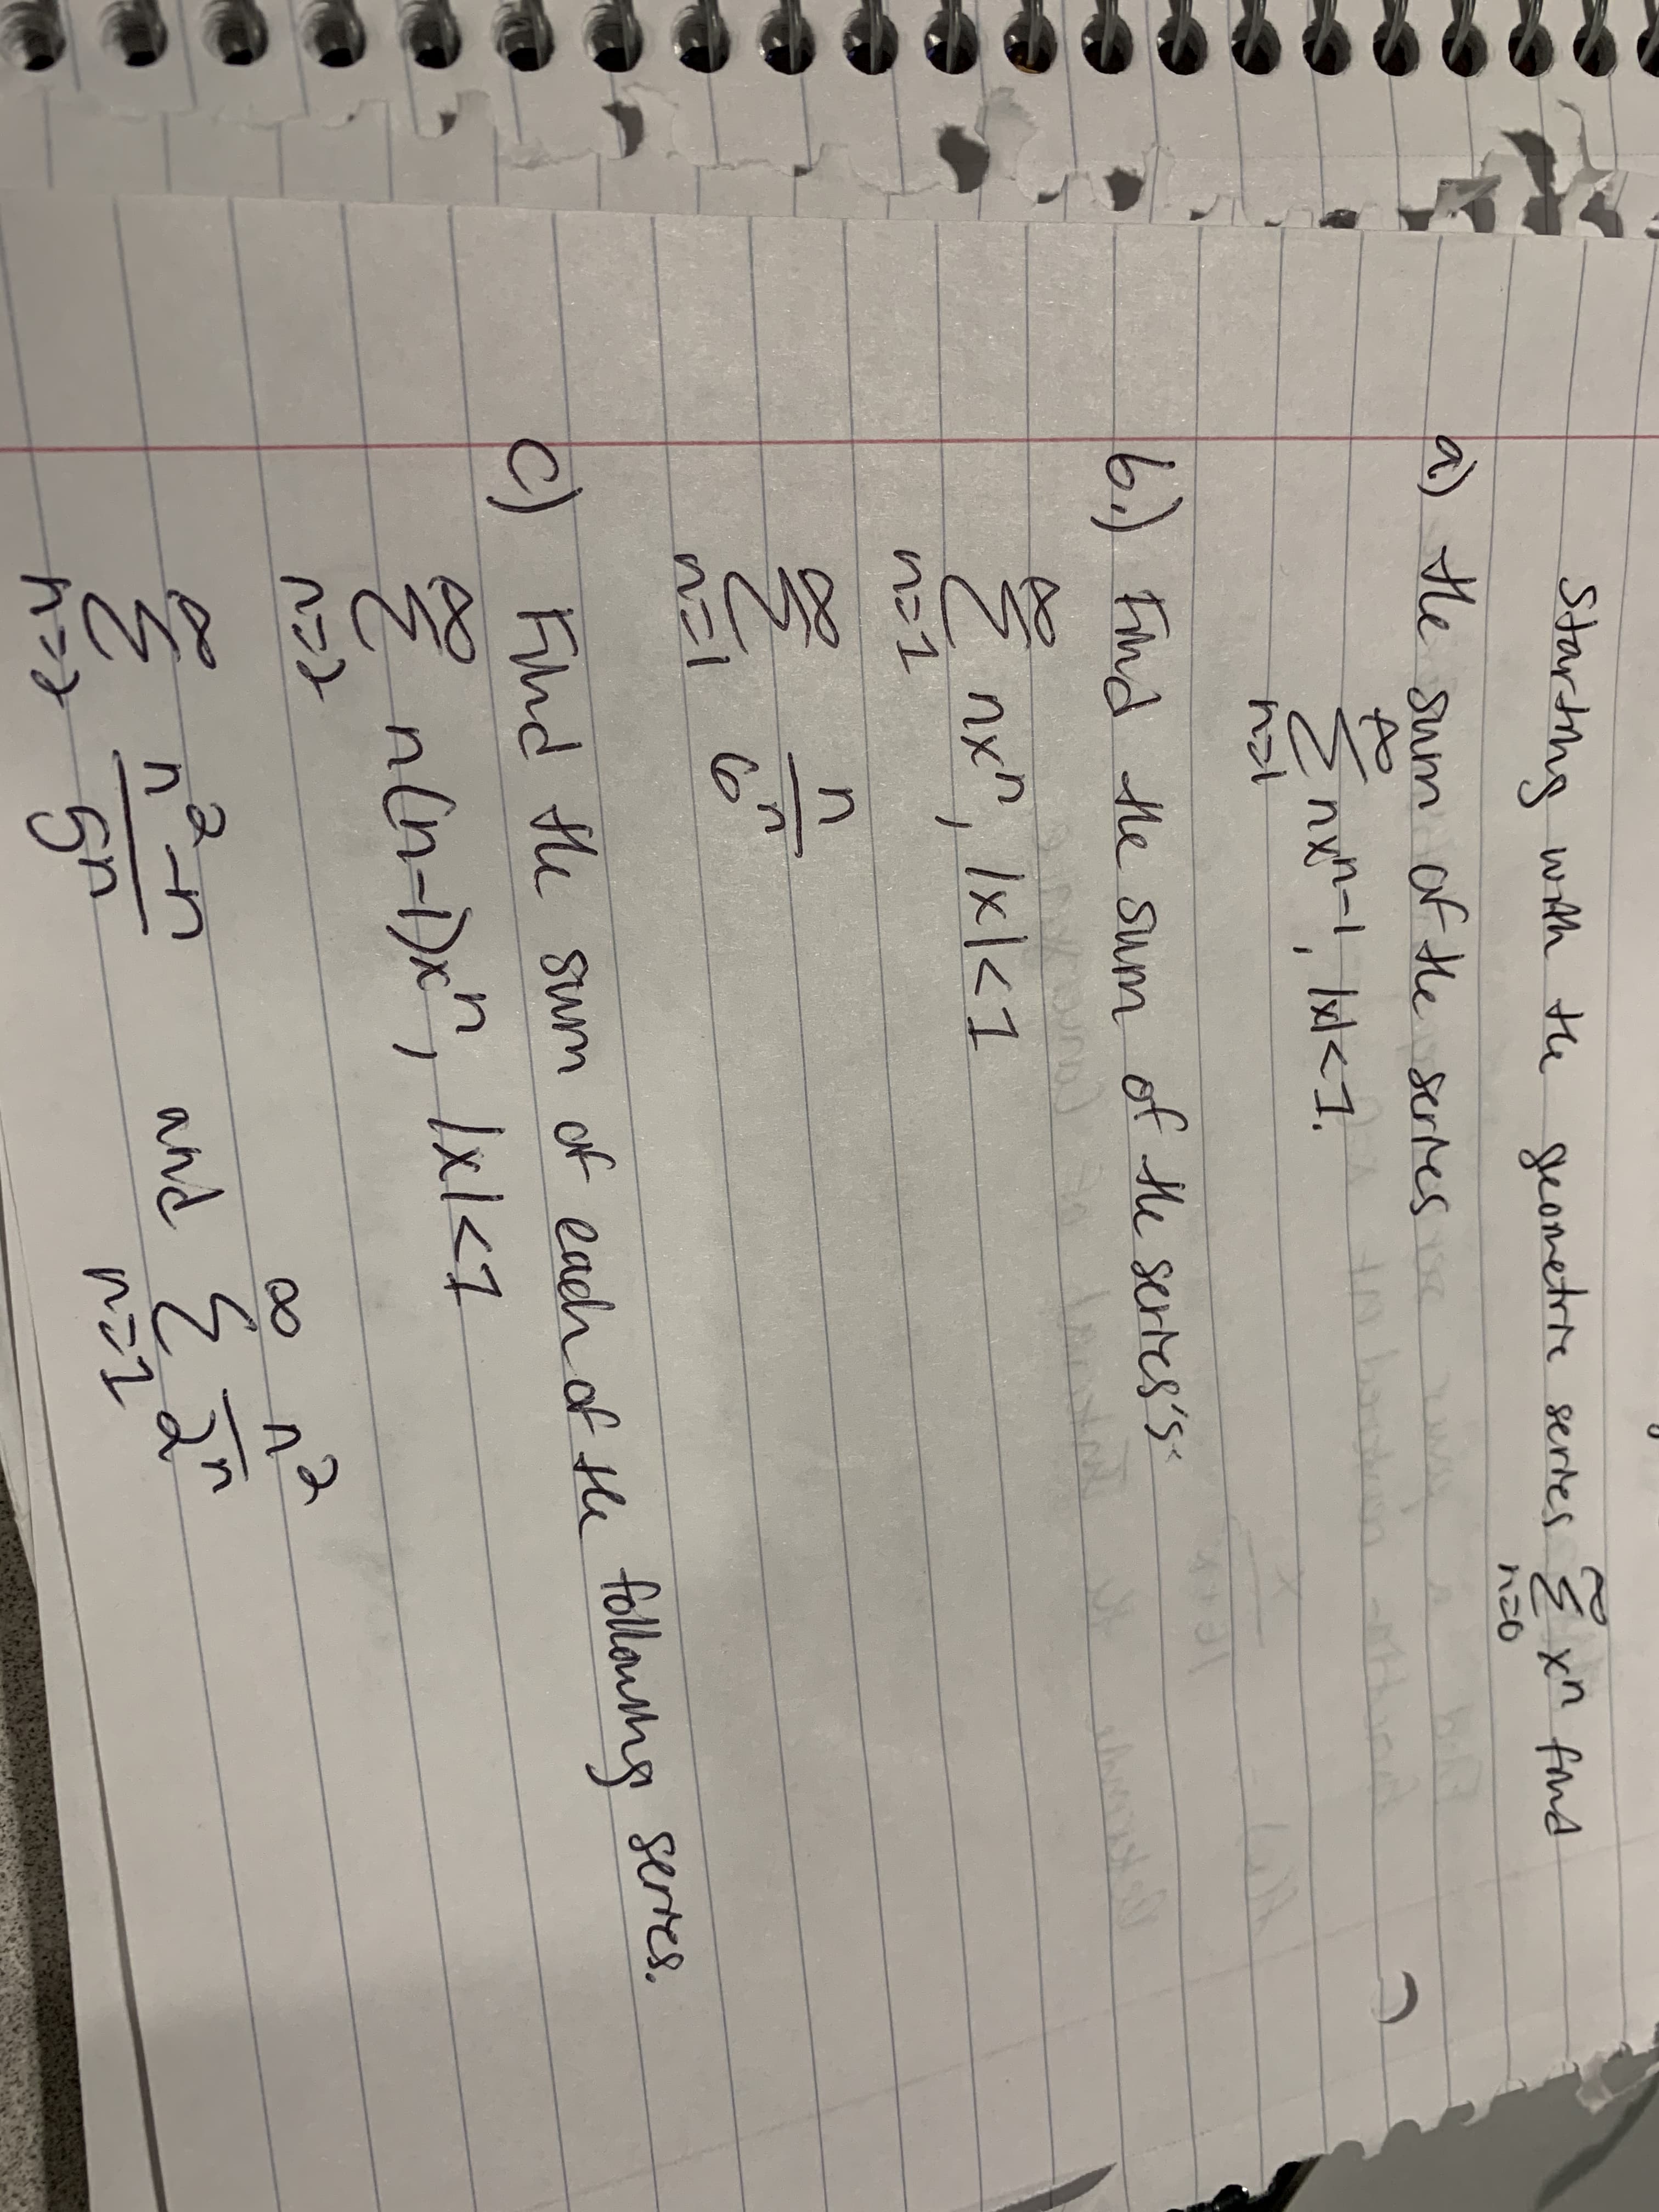 Starting with the geometric series ∞ Σ n=0 xⁿ find
a.) the sum of the series
∞ Σ n=1 nxⁿ⁻¹, |x|<1.
b.) Find the sum of the series's.
∞ Σ n=1 nxⁿ, |x|<1
∞ Σ n=1 n/6ⁿ
c) Find the sum of each of the following series.
∞ Σ n=2 n(n-1)xⁿ, |x|<1
∞ Σ n=2 (n²-n)/5ⁿ and ∞ Σ n=1 n²/2ⁿ